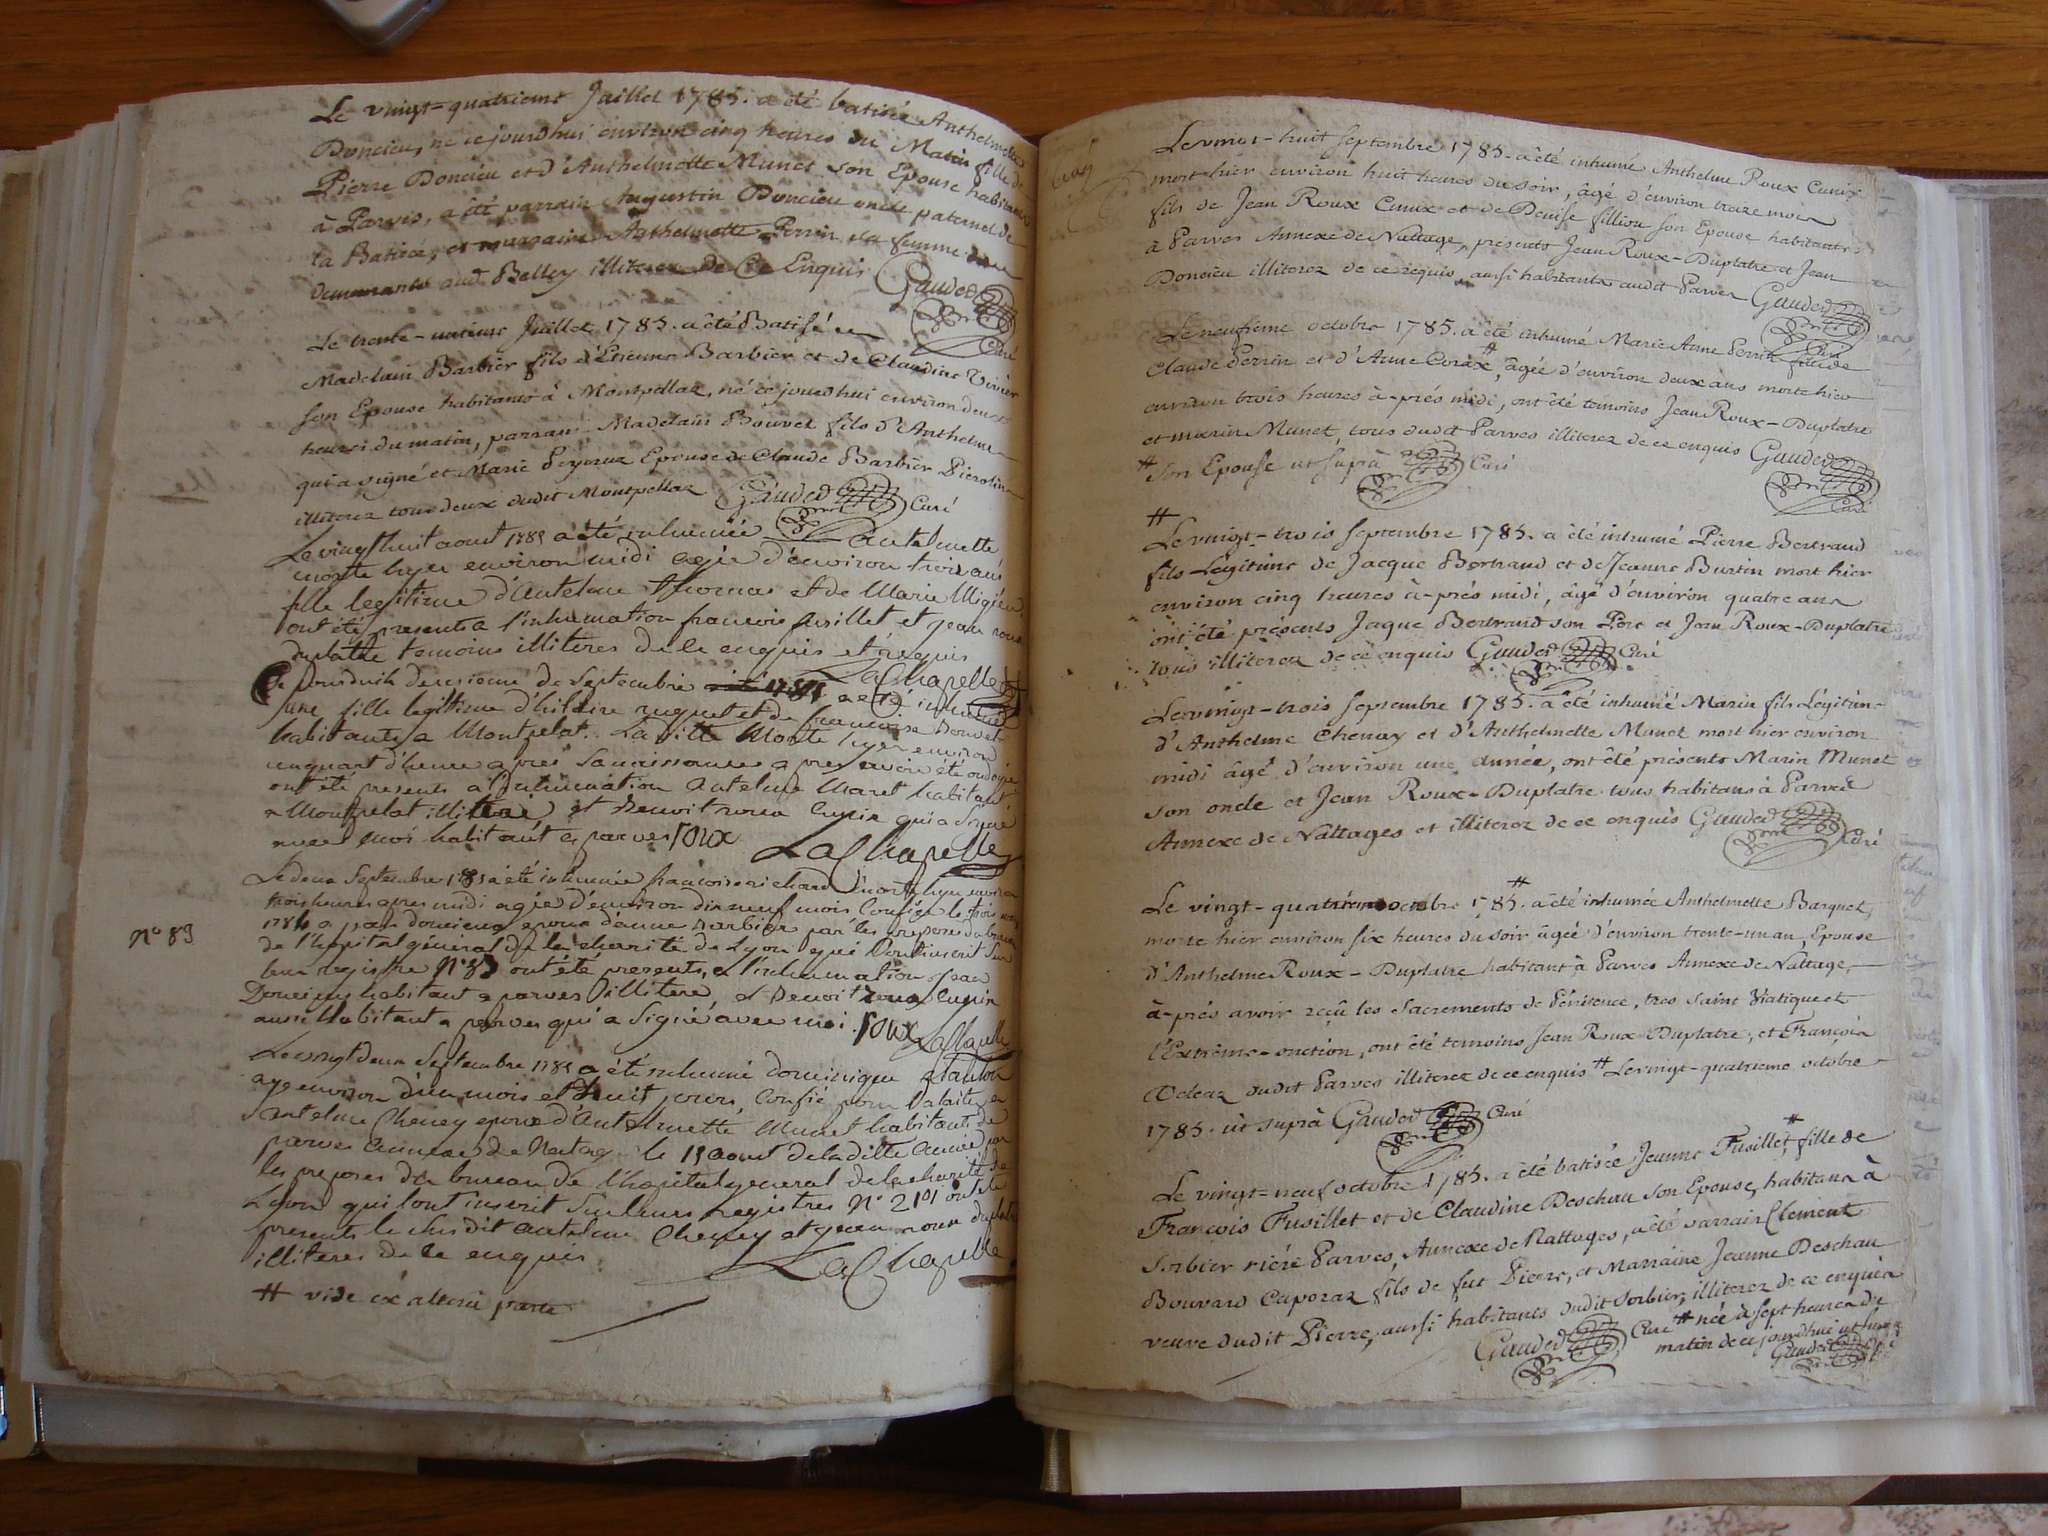 Le vingt-quatrieme Juillet 1785. a été batisée Anthelmette
Doncieu, né ce jourdhui environ cinq heures du Matin fille de
Pierre Doncieu et d'Anthelmette Munet son Epouse habitants
à Parvis, a été parrain Augustin Doncieu oncle paternel de
la Batisée, et marraine Anthelmette Perrin sa femme
demeurants aud. Belley illiterez de Ce Enquis Gauded
Curé
Le trente-unieme Juillet 1785. a été Batisé
Madelain Barbier fils d'Etienne Barbier et de Claudine Vivier
son Epouse habitants à Montpellaz, né ce jourdhui environ deux
heures du matin, parrain Madelain Bouvet fils d'Anthelme
qui a signé et Marie Peyeraz Epouse de Claude Barbier Pierolin
illiterez tous deux dudit Montpellaz Gauded Curé
Le vingt huit aout 1785 a été inhumée antelmette
morte hyer environ midi agée d'environ trois ans
fille legitime d'antelme Thomas et de Marie Migieu
ont été presents a l'inhumation francois fusillet et jean roux
duplatre temoins illiteres de ce enquis et requis
LaChapelle
Ce jourduit deuxieme de septembre 1785 a eté inhumé
une fille legitime d'hilaire ruguet et de francoise bouvet
habitants a Montpelat. La ditte Morte hyer environ
un quart d'heure apres sa naissance apres avoir été ondoyée
ont été presents a l'inhumation antelme Maret habitant
a Montpelat illiteré et Benoit roux cunix qui a signé
avec moi habitant a parves roux LaChapelle
Le deux Septembre 1785 a été inhumée francoise richard morte hyer environ
trois heures apres midi agée d'environ dixneuf mois Confiée le trois
1784 a jean doncieux epoux d'anne barbier par les preposés du bureau
N° 83
de l'hopital géneral de la charité de Lyon qui l'ont inscrit sur
leur registre N° 83 ont été presents a l'inhumation jean
Doncieux habitant a parves illiteré, et Benoit roux cunix
aussi habitant a parves qui a signé avec moi. roux LaChapelle
Le vingt deux Septembre 1785 a été inhumé dominique
age environ d'un mois et huit jours, Confié pour l'alaiter a
antelme Cheney epoux d'antelmette Munet habitants de
parves annexe de Natage le 15 aout de la ditte année par
les preposes du bureau de l'hopital general de la charité de
Lyon qui l'ont inscrit sur leurs registres N° 2101 ont été
presents le susdit antelme Cheney et jean roux duplatre
illiteres de ce enquis LaChapelle
# vide ex altera parte
Le vingt-huit septembre 1785. a été inhumé Anthelme Roux Cunix
mort hier environ huit heures du soir, âgé d'environ treize mois
fils de Jean Roux Cunix et de Denise fillion son Epouse habitants
à Parves Annexe de Nattage, présents Jean Roux-Duplatre et Jean
Doncieu illiterez de ce requis, aussi habitants audit Parves Gauded
Curé
Le neufieme octobre 1785. a été inhumé Marie Anne Perrin fille de
Claude Perrin et d'Anne Coraz #, âgée d'environ deux ans morte hier
environ trois heures à-prés midi, ont été temoins Jean Roux-Duplatre
et marin Munet, tous dudit Parves illiterez de ce enquis Gauded
# son Epouse ut suprà Curé
Curé
#
Le vingt-trois septembre 1785. a été inhumé Pierre Bertrand
fils Légitime de Jacque Bertrand et de Jeanne Burtin mort hier
environ cinq heures à-prés midi, âgé d'environ quatre ans
ont été présents Jaque Bertrand son Pere et Jean Roux-Duplatre
tous illiterez de ce enquis Gauded Curé
Le vingt-trois septembre 1785. a été inhumé Marin fils Légitim-
d'Anthelme Chenay et d'Anthelmette Munet mort hier environ
midi âgé d'environ une année, ont été présents Marin Munet
son oncle et Jean Roux-Duplatre tous habitans à Parves
Annexe de Nattages et illiterez de ce enquis Gauded
Curé
Le vingt-quatrieme octobre 1785. # a été inhumée Anthelmette Barquet,
morte hier environ six heures du soir âgée d'environ trente-un an, Epouse
d'Anthelme Roux-Duplatre habitant à Parves Annexe de Nattage,
à-prés avoir reçû les sacrements de Pénitence, tres saint Viatique et
l'Extrême-onction, ont été temoins Jean Roux-Duplatre, et François
dudit Parves illiterez de ce enquis # Le vingt-quatrieme octobre
1785. ut suprà Gauded Curé
Le vingt-neuf octobre 1785. a été batisée Jeanne Fusillet, # fille de
François Fusillet et de Claudine Deschau son Epouse, habitans à
Sorbier riére Parves, Annexe de Nattages, a été parrain Clement
Bouvard Caporaz fils de fut Pierre, et Marraine Jeanne Deschau
veuve dudit Pierre, aussi habitants dudit Sorbier, illiterez de ce enquis
Gauded Curé # née à sept heures du
matin de ce jourdhui ut suprà
Gauded Curé